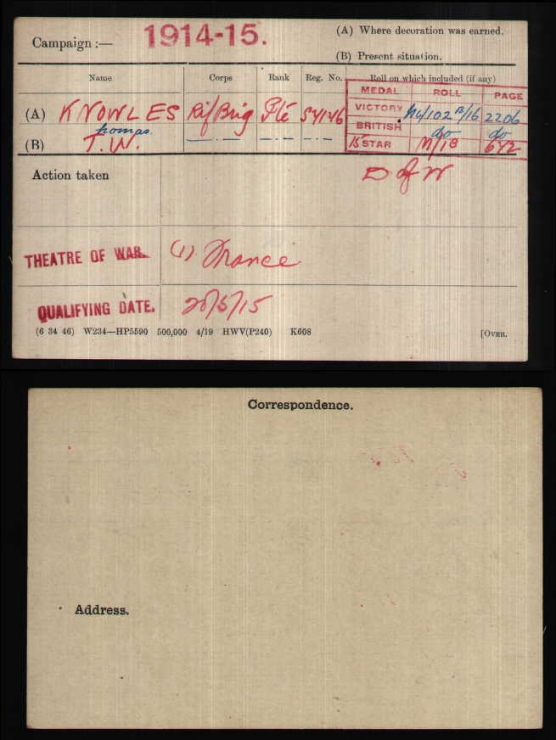 Campaign :— 1914-15.
(A) Where decoration was earned.
(B) Present situation.
Name Corps Rank Reg. No. Roll on which included (if any)
MEDAL ROLL PAGE
(A) KNOWLES Rif Brig Pte S4146
VICTORY 2206
Thomas
(B) T.W.
BRITISH do do
15 STAR 672
Action taken
D of W
THEATRE OF WAR. (1) France
QUALIFYING DATE. 20/5/15
(6 34 46) W234—HP5590 500,000 4/19 HWV(P240) K608 [OVER.
Correspondence.
Address.